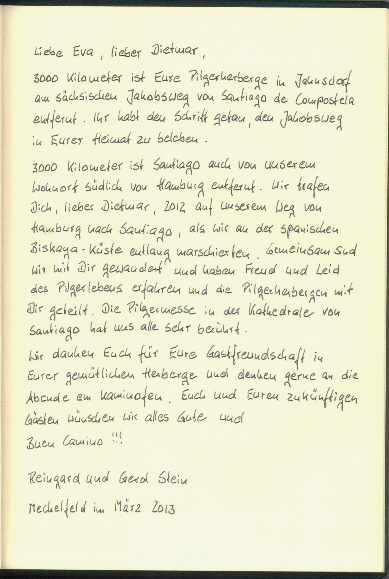 Liebe Eva, lieber Dietmar,
3000 Kilometer ist Eure Pilgerherberge in Jahnsdorf
am sächsischen Jakobsweg von Santiago de Compostela
entfernt. Ihr habt den Schritt getan, den Jakobsweg
in Eurer Heimat zu beleben.
3000 Kilometer ist Santiago auch von unserem
Wohnort südlich von Hamburg entfernt. Wir trafen
Dich, lieber Dietmar, 2012 auf unserem Weg von
Hamburg nach Santiago, als wir an der spanischen
Biskaya-Küste entlang marschierten. Gemeinsam sind
wir mit Dir gewandert und haben Freud und Leid
des Pilgerlebens erfahren und die Pilgerherbergen mit
Dir geteilt. Die Pilgermesse in der Kathedrale von
Santiago hat uns alle sehr berührt.
Wir danken Euch für Eure Gastfreundschaft in
Eurer gemütlichen Herberge und denken gerne an die
Abende am Kaminofen. Euch und Euren zukünftigen
Gästen wünschen wir alles Gute und
Buen Camino !!!
Reingard und Gerd Stein
Meckelfeld im März 2013